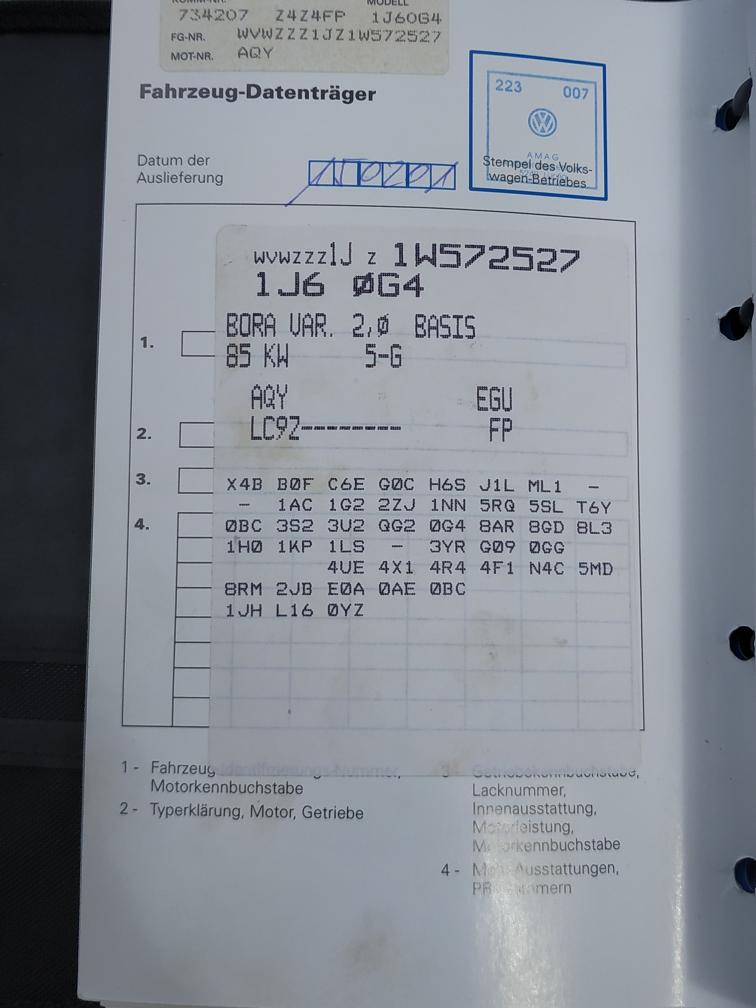 MODELL
734207 Z4Z4FP 1J60G4
FG-NR. WVWZZZ1JZ1W572527
MOT-NR. AQY
Fahrzeug-Datenträger
223 007
AMAG
Datum der
Auslieferung
150201
Stempel des Volks-
wagen-Betriebes
WVWZZZ1J Z 1W572527
1J6 0G4
BORA VAR. 2,0 BASIS
1.
85 KW 5-G
AQY EGU
2.
LC9Z-------- FP
3.
X4B B0F C6E G0C H6S J1L ML1 -
- 1AC 1G2 2ZJ 1NN 5RQ 5SL T6Y
4.
0BC 3S2 3U2 QG2 0G4 8AR 8GD 8L3
1H0 1KP 1LS - 3YR G09 0GG
4UE 4X1 4R4 4F1 N4C 5MD
8RM 2JB E0A 0AE 0BC
1JH L16 0YZ
1 - Fahrzeug-Identifizierungs-Nummer,
Motorkennbuchstabe
2 - Typerklärung, Motor, Getriebe
3 - Getriebekennbuchstabe,
Lacknummer,
Innenausstattung,
Motorleistung,
Motorkennbuchstabe
4 - Ausstattungen,